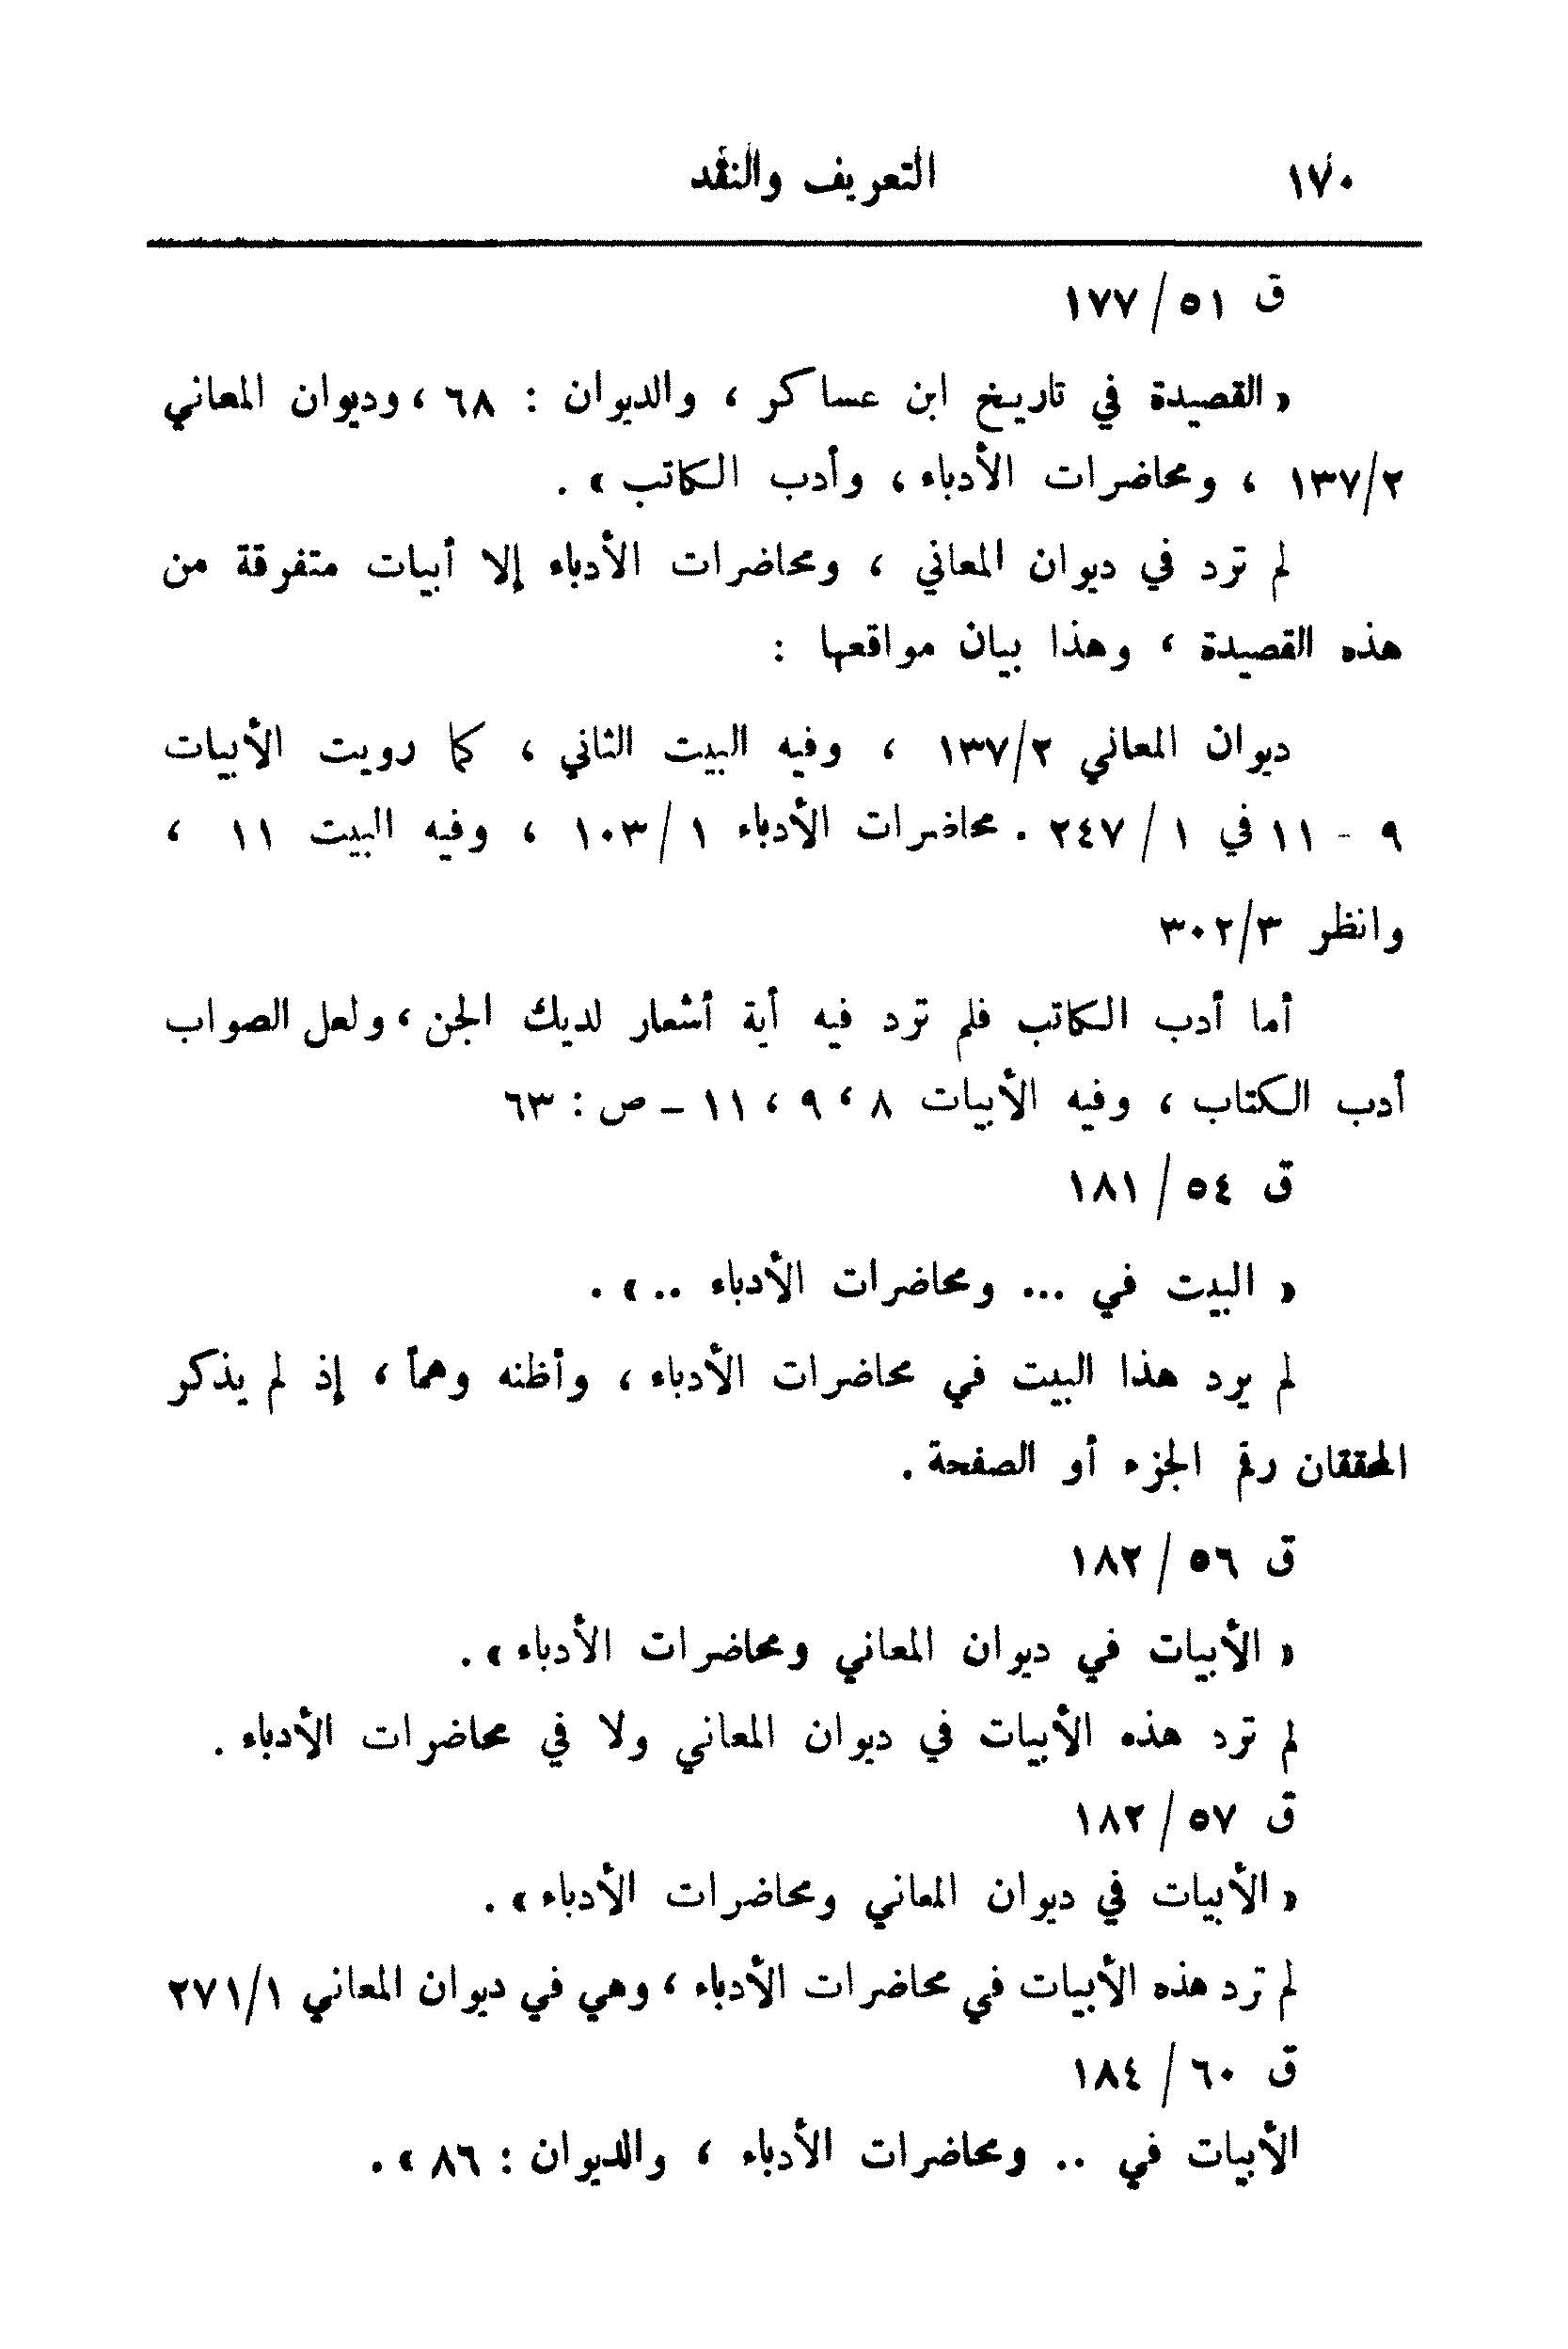 ١٧٠ التعريف والنقد
ق ٥١ / ١٧٧
« القصيدة في تاريخ ابن عساكر ، والديوان : ٦٨ ، وديوان المعاني
١٣٧/٢ ، ومحاضرات الأدباء ، وأدب الكاتب » .
لم ترد في ديوان المعاني ، ومحاضرات الأدباء إلا أبيات متفرقة من
هذه القصيدة ، وهذا بيان مواقعها :
ديوان المعاني ١٣٧/٢ ، وفيه البيت الثاني ، كما رويت الأبيات
٩ - ١١ في ١ / ٢٤٧ . محاضرات الأدباء ١ / ١٠٣ ، وفيه البيت ١١ ،
وانظر ٣٠٢/٣
أما أدب الكاتب فلم ترد فيه أية أشعار لديك الجن ، ولعل الصواب
أدب الكتاب ، وفيه الأبيات ٨ ، ٩ ، ١١ – ص : ٦٣
ق ٥٤ / ١٨١
« البيت في ... ومحاضرات الأدباء .. » .
لم يرد هذا البيت في محاضرات الأدباء ، وأظنه وهماً ، إذ لم يذكر
المحققان رقم الجزء أو الصفحة .
ق ٥٦ / ١٨٢
« الأبيات في ديوان المعاني ومحاضرات الأدباء » .
لم ترد هذه الأبيات في ديوان المعاني ولا في محاضرات الأدباء .
ق ٥٧ / ١٨٢
« الأبيات في ديوان المعاني ومحاضرات الأدباء » .
لم ترد هذه الأبيات في محاضرات الأدباء ، وهي في ديوان المعاني ٢٧١/١
ق ٦٠ / ١٨٤
الأبيات في .. ومحاضرات الأدباء ، والديوان : ٨٦ » .